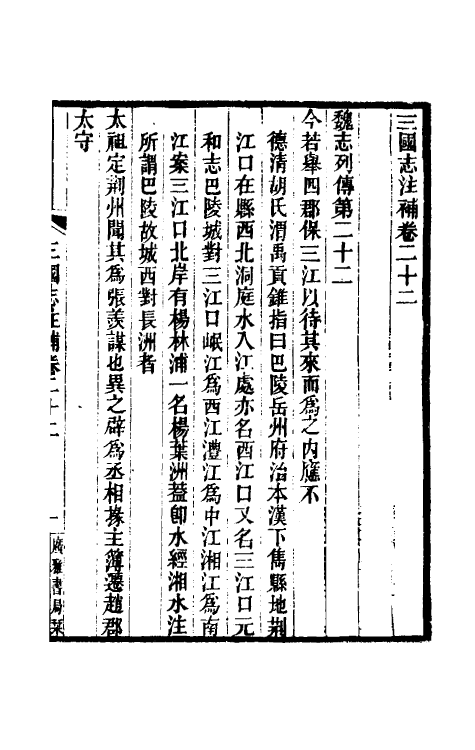 三國志注補卷二十二
魏志列傳第二十二
今若舉四郡保三江以待其來而為之內應不
德清胡氏渭禹貢錐指曰巴陵岳州府治本漢下雋縣地荆
江口在縣西北洞庭水入江處亦名西江口又名三江口元
和志巴陵城對三江口岷江為西江澧江為中江湘江為南
江案三江口北岸有楊林浦一名楊葉洲蓋卽水經湘水注
所謂巴陵故城西對長洲者
太祖定荆州聞其為張羨謀也異之辟為丞相掾主簿遷趙郡
太守
三國志注補卷二十二
一
廣雅書局栞